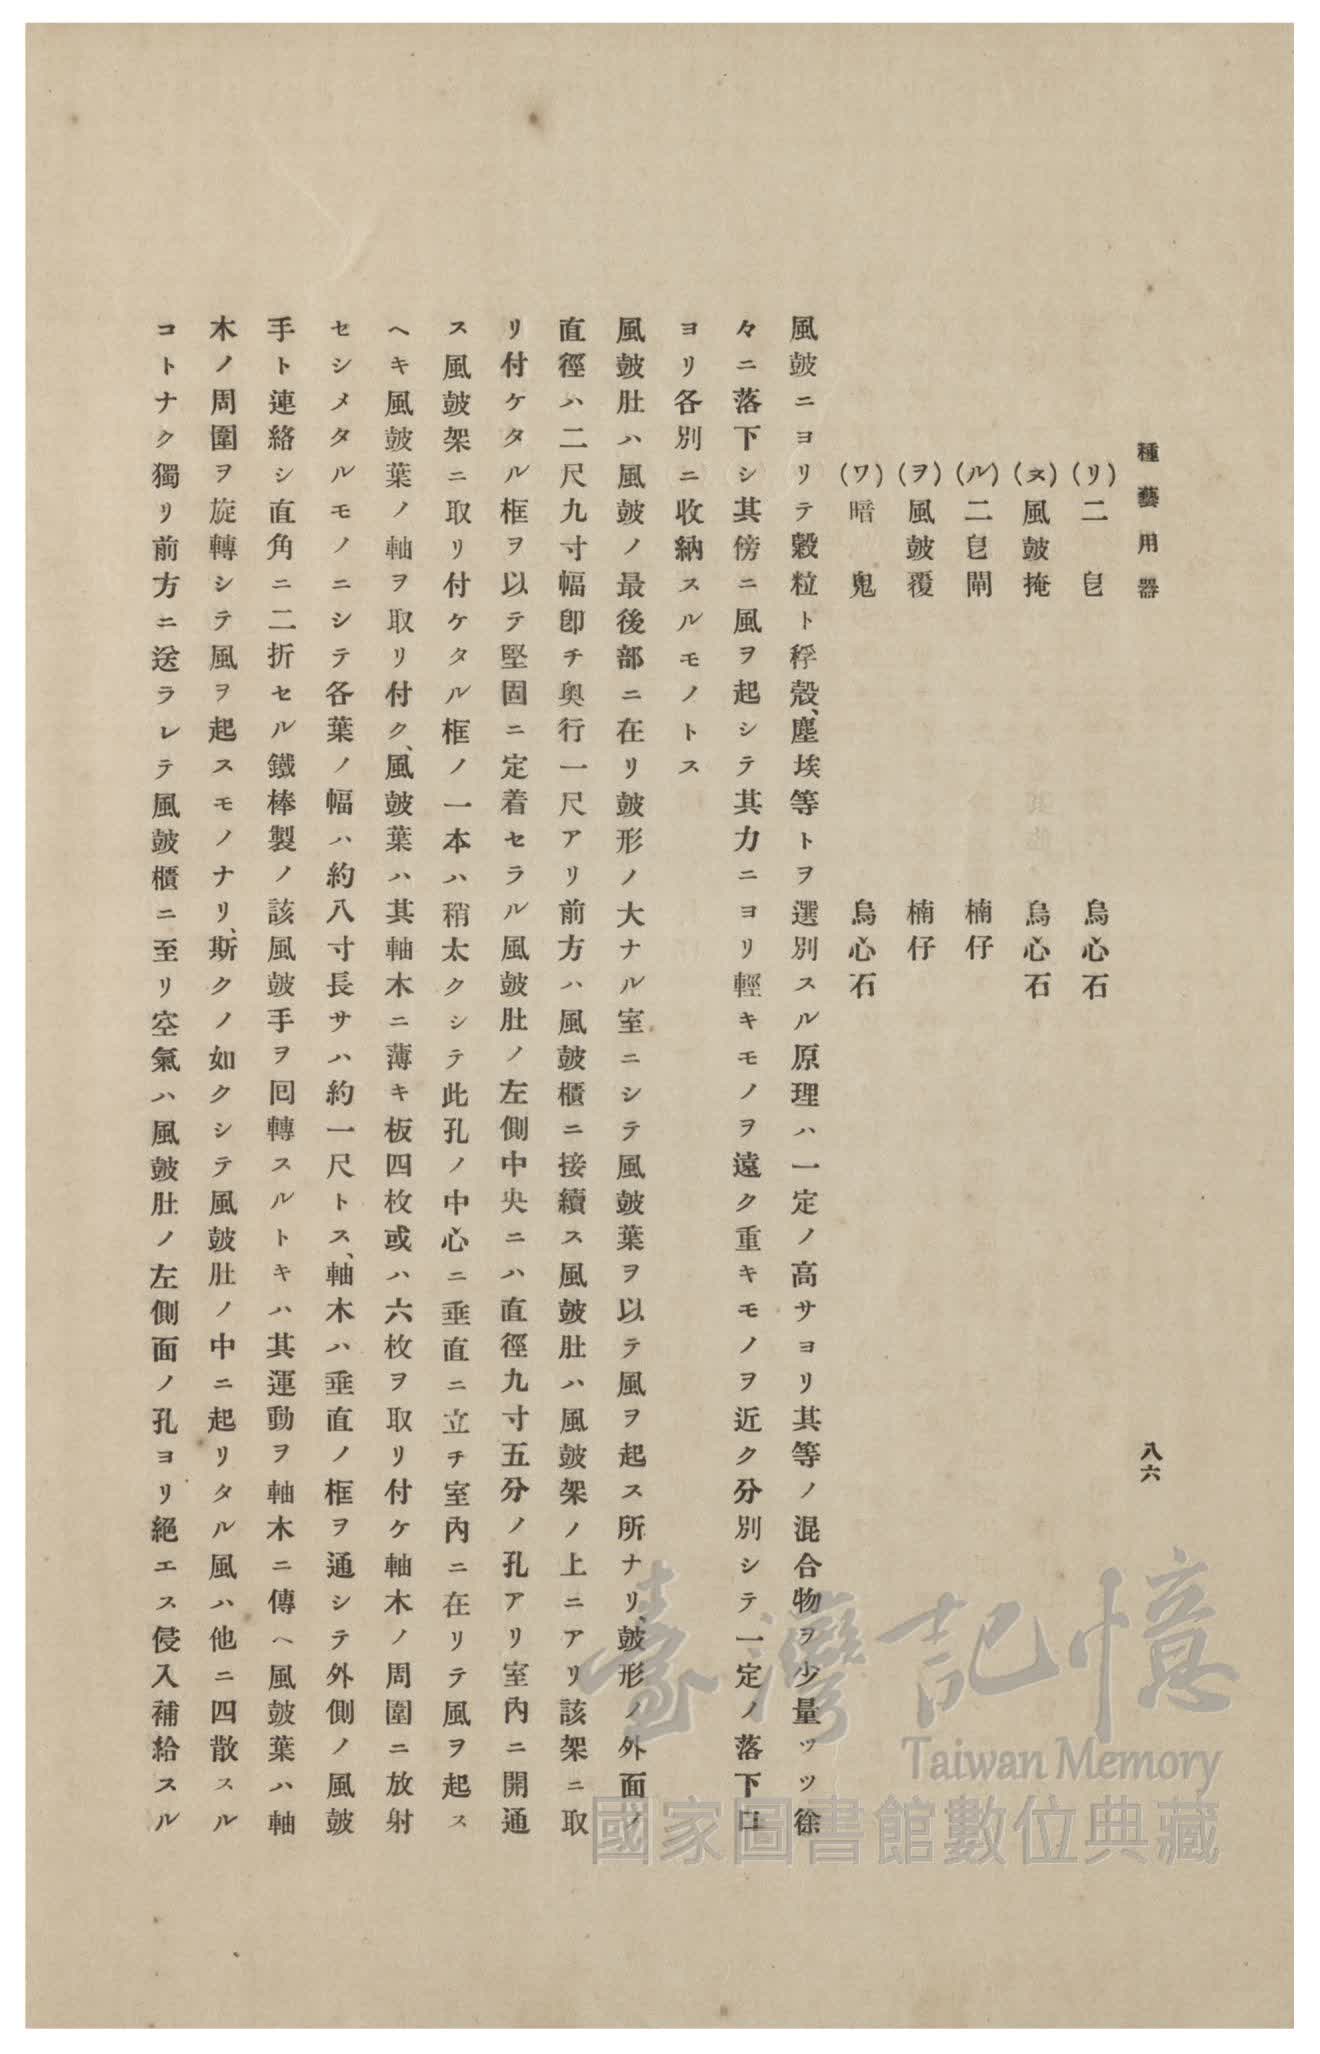 種藝用器
八六
(リ)二皀 烏心石
(ヌ)風皷掩 烏心石
(ル)二皀閘 楠仔
(ヲ)風皷覆 楠仔
(ワ)暗鬼 烏心石
風皷ニヨリテ穀粒ト稃殼、塵埃等トヲ選別スル原理ハ一定ノ高サヨリ其等ノ混合物ヲ少量ツツ徐
々ニ落下シ其傍ニ風ヲ起シテ其力ニヨリ輕キモノヲ遠ク重キモノヲ近ク分別シテ一定ノ落下口
ヨリ各別ニ收納スルモノトス
風皷肚ハ風皷ノ最後部ニ在リ皷形ノ大ナル室ニシテ風皷葉ヲ以テ風ヲ起ス所ナリ、皷形ノ外面ノ
直徑ハ二尺九寸幅卽チ奧行一尺アリ前方ハ風皷櫃ニ接續ス風皷肚ハ風皷架ノ上ニアリ該架ニ取
リ付ケタル框ヲ以テ堅固ニ定着セラル風皷肚ノ左側中央ニハ直徑九寸五分ノ孔アリ室內ニ開通
ス風皷架ニ取リ付ケタル框ノ一本ハ稍太クシテ此孔ノ中心ニ垂直ニ立チ室內ニ在リテ風ヲ起ス
ヘキ風皷葉ノ軸ヲ取リ付ク、風皷葉ハ其軸木ニ薄キ板四枚或ハ六枚ヲ取リ付ケ軸木ノ周圍ニ放射
セシメタルモノニシテ各葉ノ幅ハ約八寸長サハ約一尺トス、軸木ハ垂直ノ框ヲ通シテ外側ノ風皷
手ト連絡シ直角ニ二折セル鐵棒製ノ該風皷手ヲ囘轉スルトキハ其運動ヲ軸木ニ傳ヘ風皷葉ハ軸
木ノ周圍ヲ旋轉シテ風ヲ起スモノナリ、斯クノ如クシテ風皷肚ノ中ニ起リタル風ハ他ニ四散スル
コトナク獨リ前方ニ送ラレテ風皷櫃ニ至リ空氣ハ風皷肚ノ左側面ノ孔ヨリ絕エス侵入補給スル
臺灣記憶
Taiwan Memory
國家圖書館數位典藏